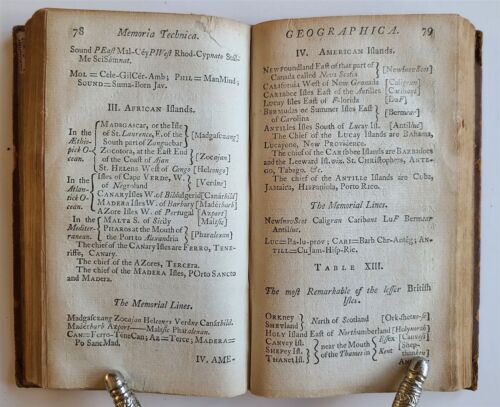 78 Memoria Technica.
Sound PEast Mal-Céy PWest Rhod-Cypnate
Me SciSamnat.
MOL = Cele-GilCér-Amb; PHIL = ManMind;
SOUND = Suma-Born Jav.
III. AFRICAN Islands.
In the Æthiopick O-cean.
MADAGASCAR, or the Isle
of St. Laurence, E. of the
South part of Zanguebar
[Madgasczang]
ZOCOTORA, at the East End
of the Coast of Ajan
[Zocajan]
St. HELENS West of Congo [Helcongo]
In the Atlantick O-cean.
Isles of CAPE VERDE, W.
of Negroland
[Verdne]
CANARY Isles W. of Biledulgerid [Canárbild]
MADERA Isles W. of Barbary [Maderbarb]
AZORE Isles W. of Portugal [Azport]
In the Mediterranean.
MALTA S. of Sicily [Malsise]
PHAROS at the Mouth of
the Port to Alexandria
[Pharalexan]
The chief of the CANARY Isles are FERRO, TENE-
RIFFE, CANARY.
The chief of the AZORES, TERCERA.
The chief of the MADERA Isles, PORTO SANCTO
and MADERA.
The Memorial Lines.
Madgasczang Zocajan Helcongo Verdne Canárbild.
Maderbarb Azport— Malsise Pharalexan.
CAN=Ferro-TéneCan; AZ=Terce; MADERA=
Po SancMad.
IV. AME-
GEOGRAPHICA. 79
IV. AMERICAN Islands.
NEWFOUNDLAND East of that part of
Canada called Nova Scotia
[NewfouScot]
CALIFORNIA West of New Granada [Caligran]
CARIBBEE Isles East of the Antilles [Caribant]
LUCAY Isles East of Florida [LuF]
BERMUDAS or Summer Isles East
of Carolina
[Bermcar]
ANTILLES Isles South of Lucay Isl. [Antiluc]
The Chief of the LUCAY Islands are BAHAMA,
LUCAYONE, NEW PROVIDENCE.
The chief of the CARIBBEE Islands are BARBADOES
and the Leeward Isl. viz. St. CHRISTOPHERS, ANTE-
GO, TABAGO, &c.
The chief of the ANTILLE Islands are CUBA,
JAMAICA, HISPANIOLA, PORTO RICO.
The Memorial Lines.
NewfouScot Caligran Caribant LuF Bermcar
Antiluc.
LUC=Ba-lu-prov; CARI=Barb Chr-Antég; AN-
TILL=CuJam-Hisp-Ric.
TABLE XIII.
The most Remarkable of the lesser British
Isles.
ORKNEY
SHETLAND
North of Scotland
HOLY ISLAND East of Northumberland
CANVEY Isl.
SHEPEY Isl.
THANET Isl.
near the Mouth
of the Thames in
Essex
Kent